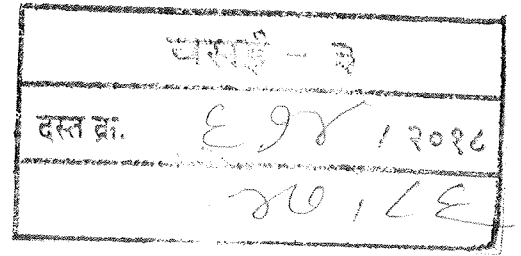 वसई - ३
दस्त क्र. ६१४ / २०१८
४७ / ८६